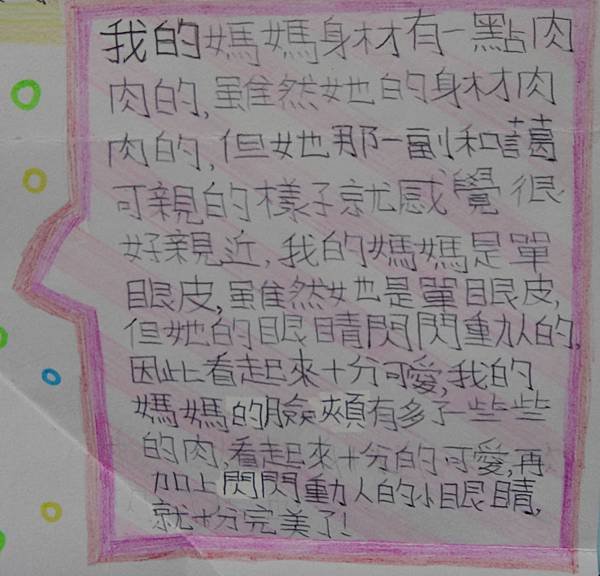 我的媽媽身材有一點肉
肉的,雖然她的身材肉
肉的,但她那一副和藹
可親的樣子就感覺很
好親近,我的媽媽是單
眼皮,雖然她是單眼皮,
但她的眼睛閃閃動人的,
因此看起來十分可愛,我的
媽媽的臉頰有多了一些些
的肉,看起來十分的可愛,再
加上閃閃動人的小眼睛,
就十分完美了!